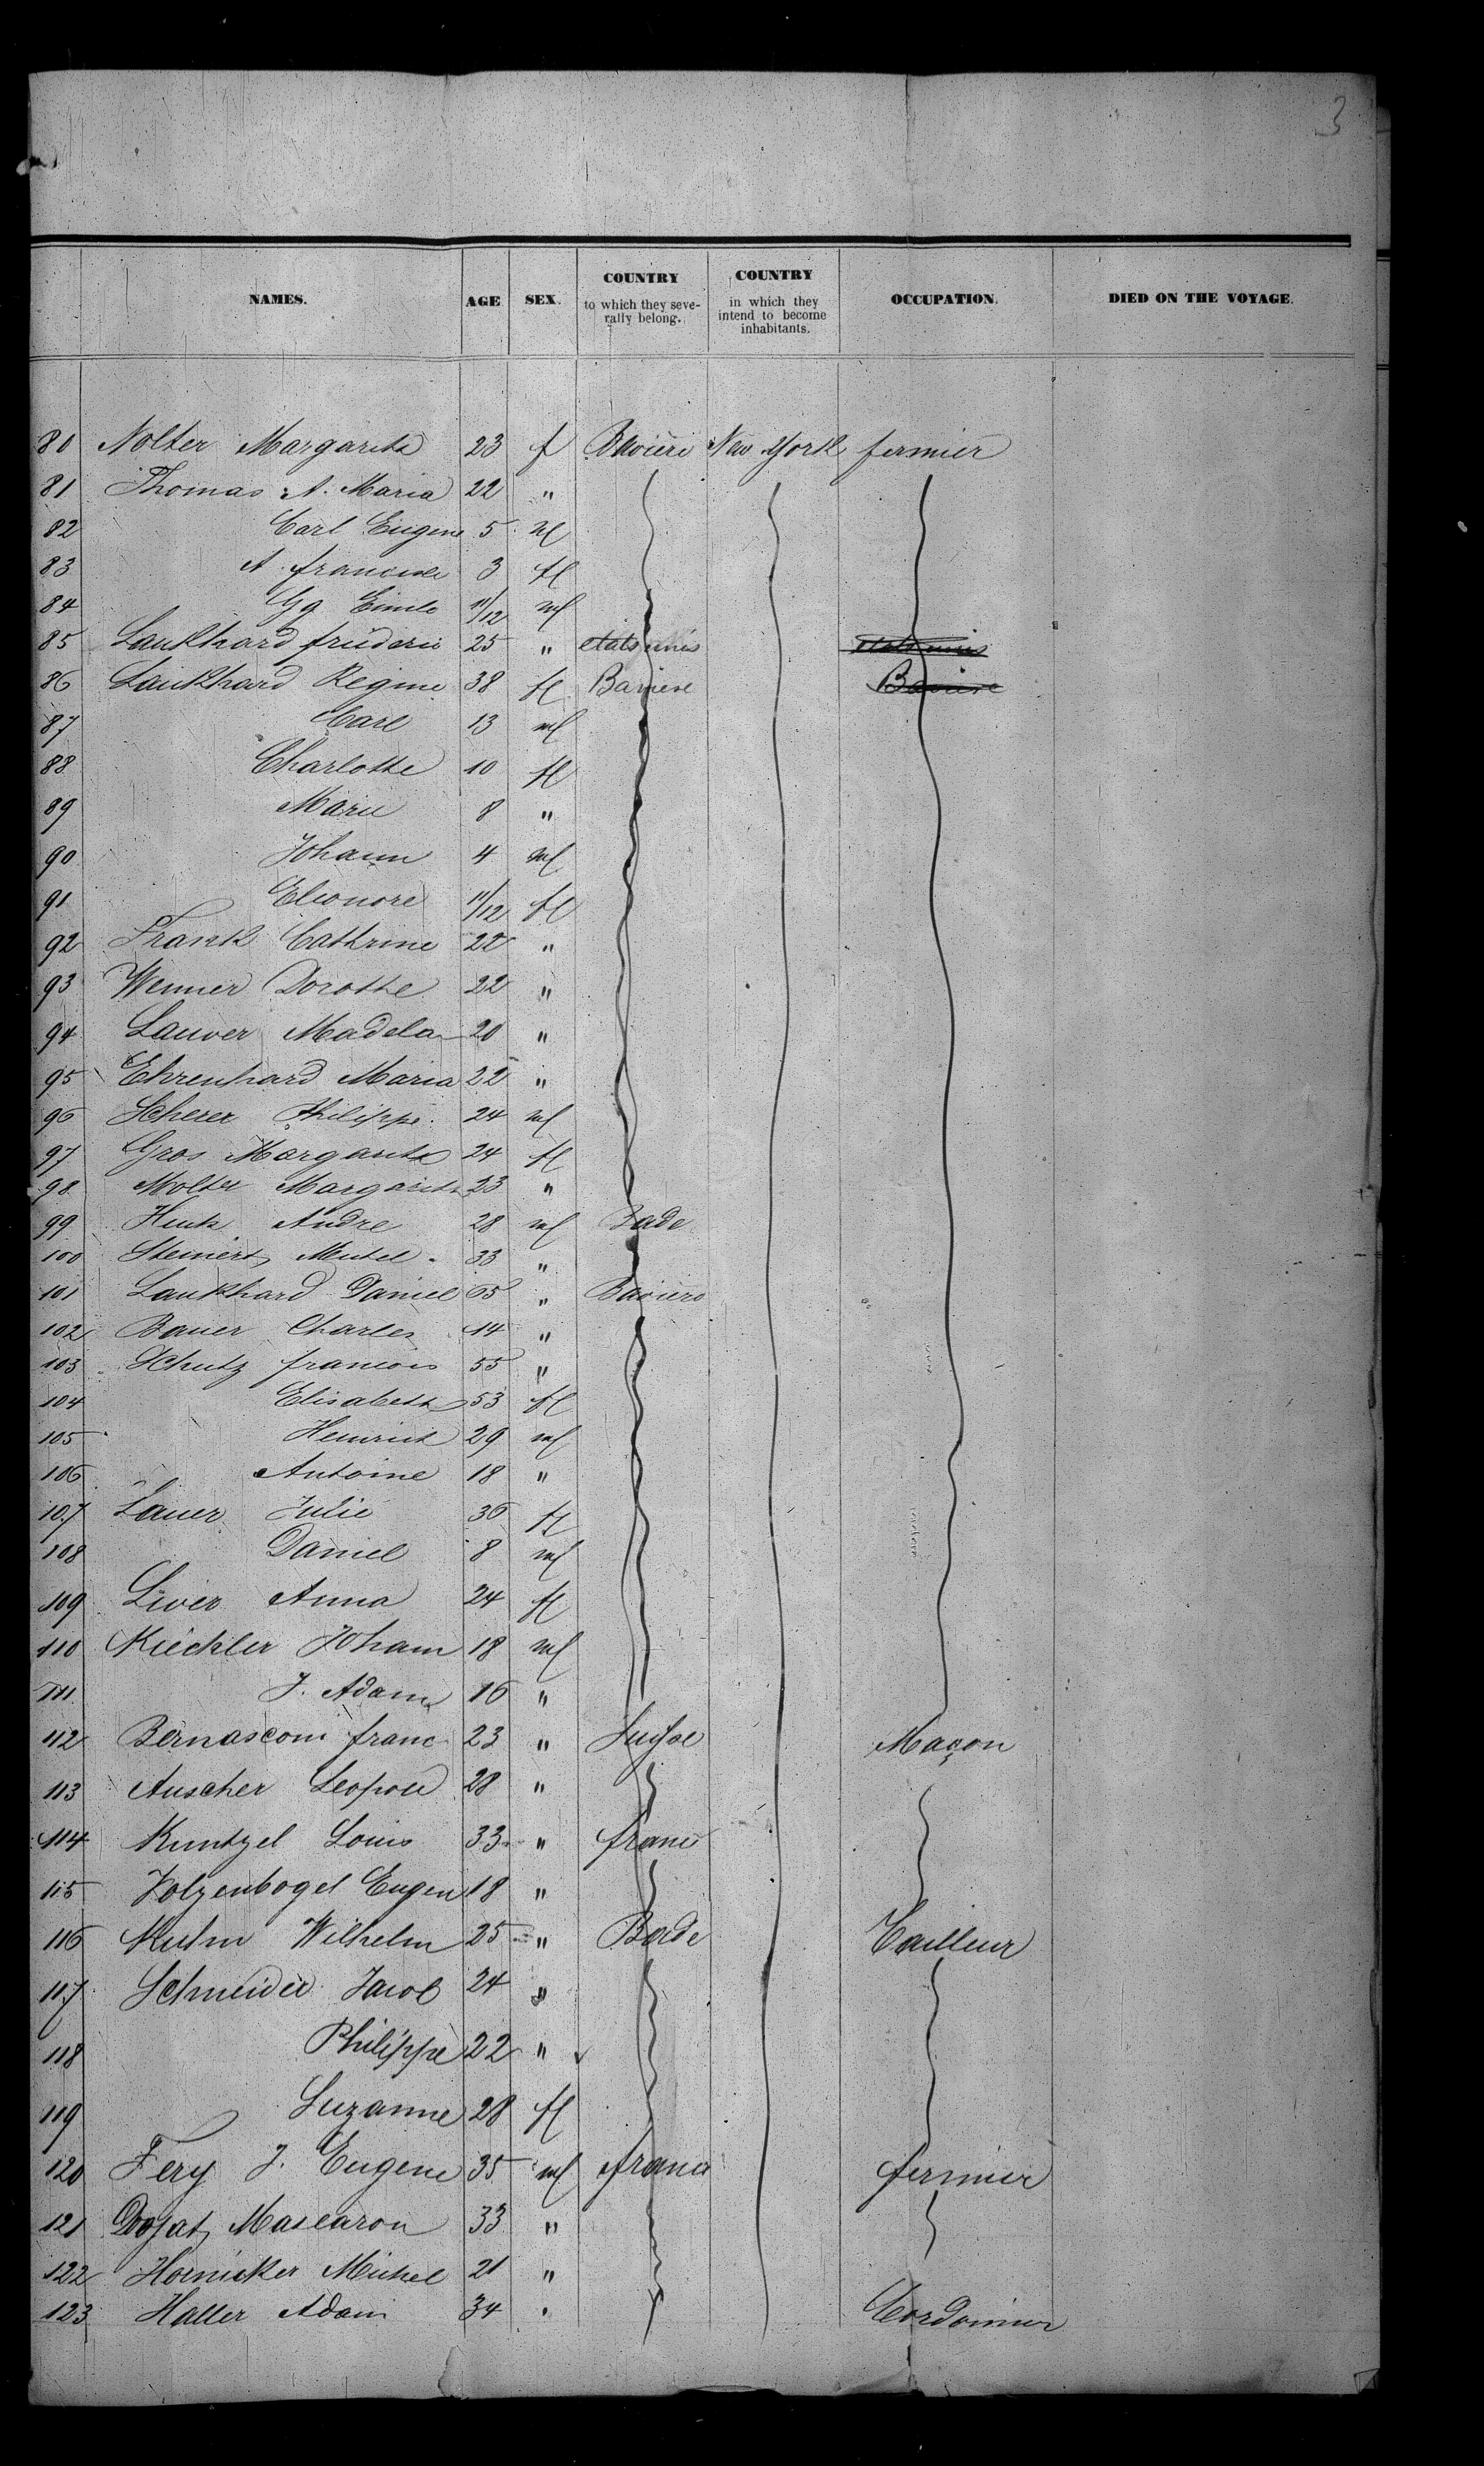 3
NAMES. AGE SEX. COUNTRY to which they seve-rally belong. COUNTRY in which they intend to become inhabitants. OCCUPATION. DIED ON THE VOYAGE.
80 Nolter Margarita 23 f Baviere New York fermier
81 Thomas A. Maria 22 "
82 Carl Eugene 5 m
83 A. 3 fl
84 Gg Emile 11/12 ml
85 Laukhard frederic 25 " etats unis etats unis
86 Laukhard Regine 38 fl Baviere Baviere
87 Carl 13 ml
88 Charlotte 10 fl
89 Marie 8 "
90 Johann 4 ml
91 Eleonore 11/12 fl
92 Frank Cathrine "
93 Wenner Dorothe 22 "
94 Lauver Madela 20 "
95 Ehrenhard Maria 22 "
96 Scherer Philippe 24 ml
97 Gros Margarita 24 fl
98 Molter Margarita 23 "
99 André 28 ml Bade
100 Steinert Michel 33 "
101 Laukhard Daniel 65 " Baviere
102 Bauer Charles 14 "
103 Schutz francois 55 "
104 Elisabeth 53 fl
105 Heinrich 29 ml
106 Antoine 18 "
107 Lauer Julie 36 fl
108 Daniel 8 ml
109 Liver Anna 24 fl
110 Kiechler Johann 18 ml
111 J. Adam 16 "
112 Bernasconi franc 23 " Suisse Maçon
113 Auscher Leopold 28 "
114 Kuntzel Louis 33 " france
115 Holzenbogel Eugen 18 "
116 Wilhelm 25 " Bade Tailleur
117 Schneider Jacob 24 "
118 Philippe 22 "
119 Suzanne 28 fl
120 Fery J. Eugene 35 ml france fermier
121 Mascaron 33 "
122 Hornicker Michel 21 "
123 Haller Adam 34 " Cordonnier